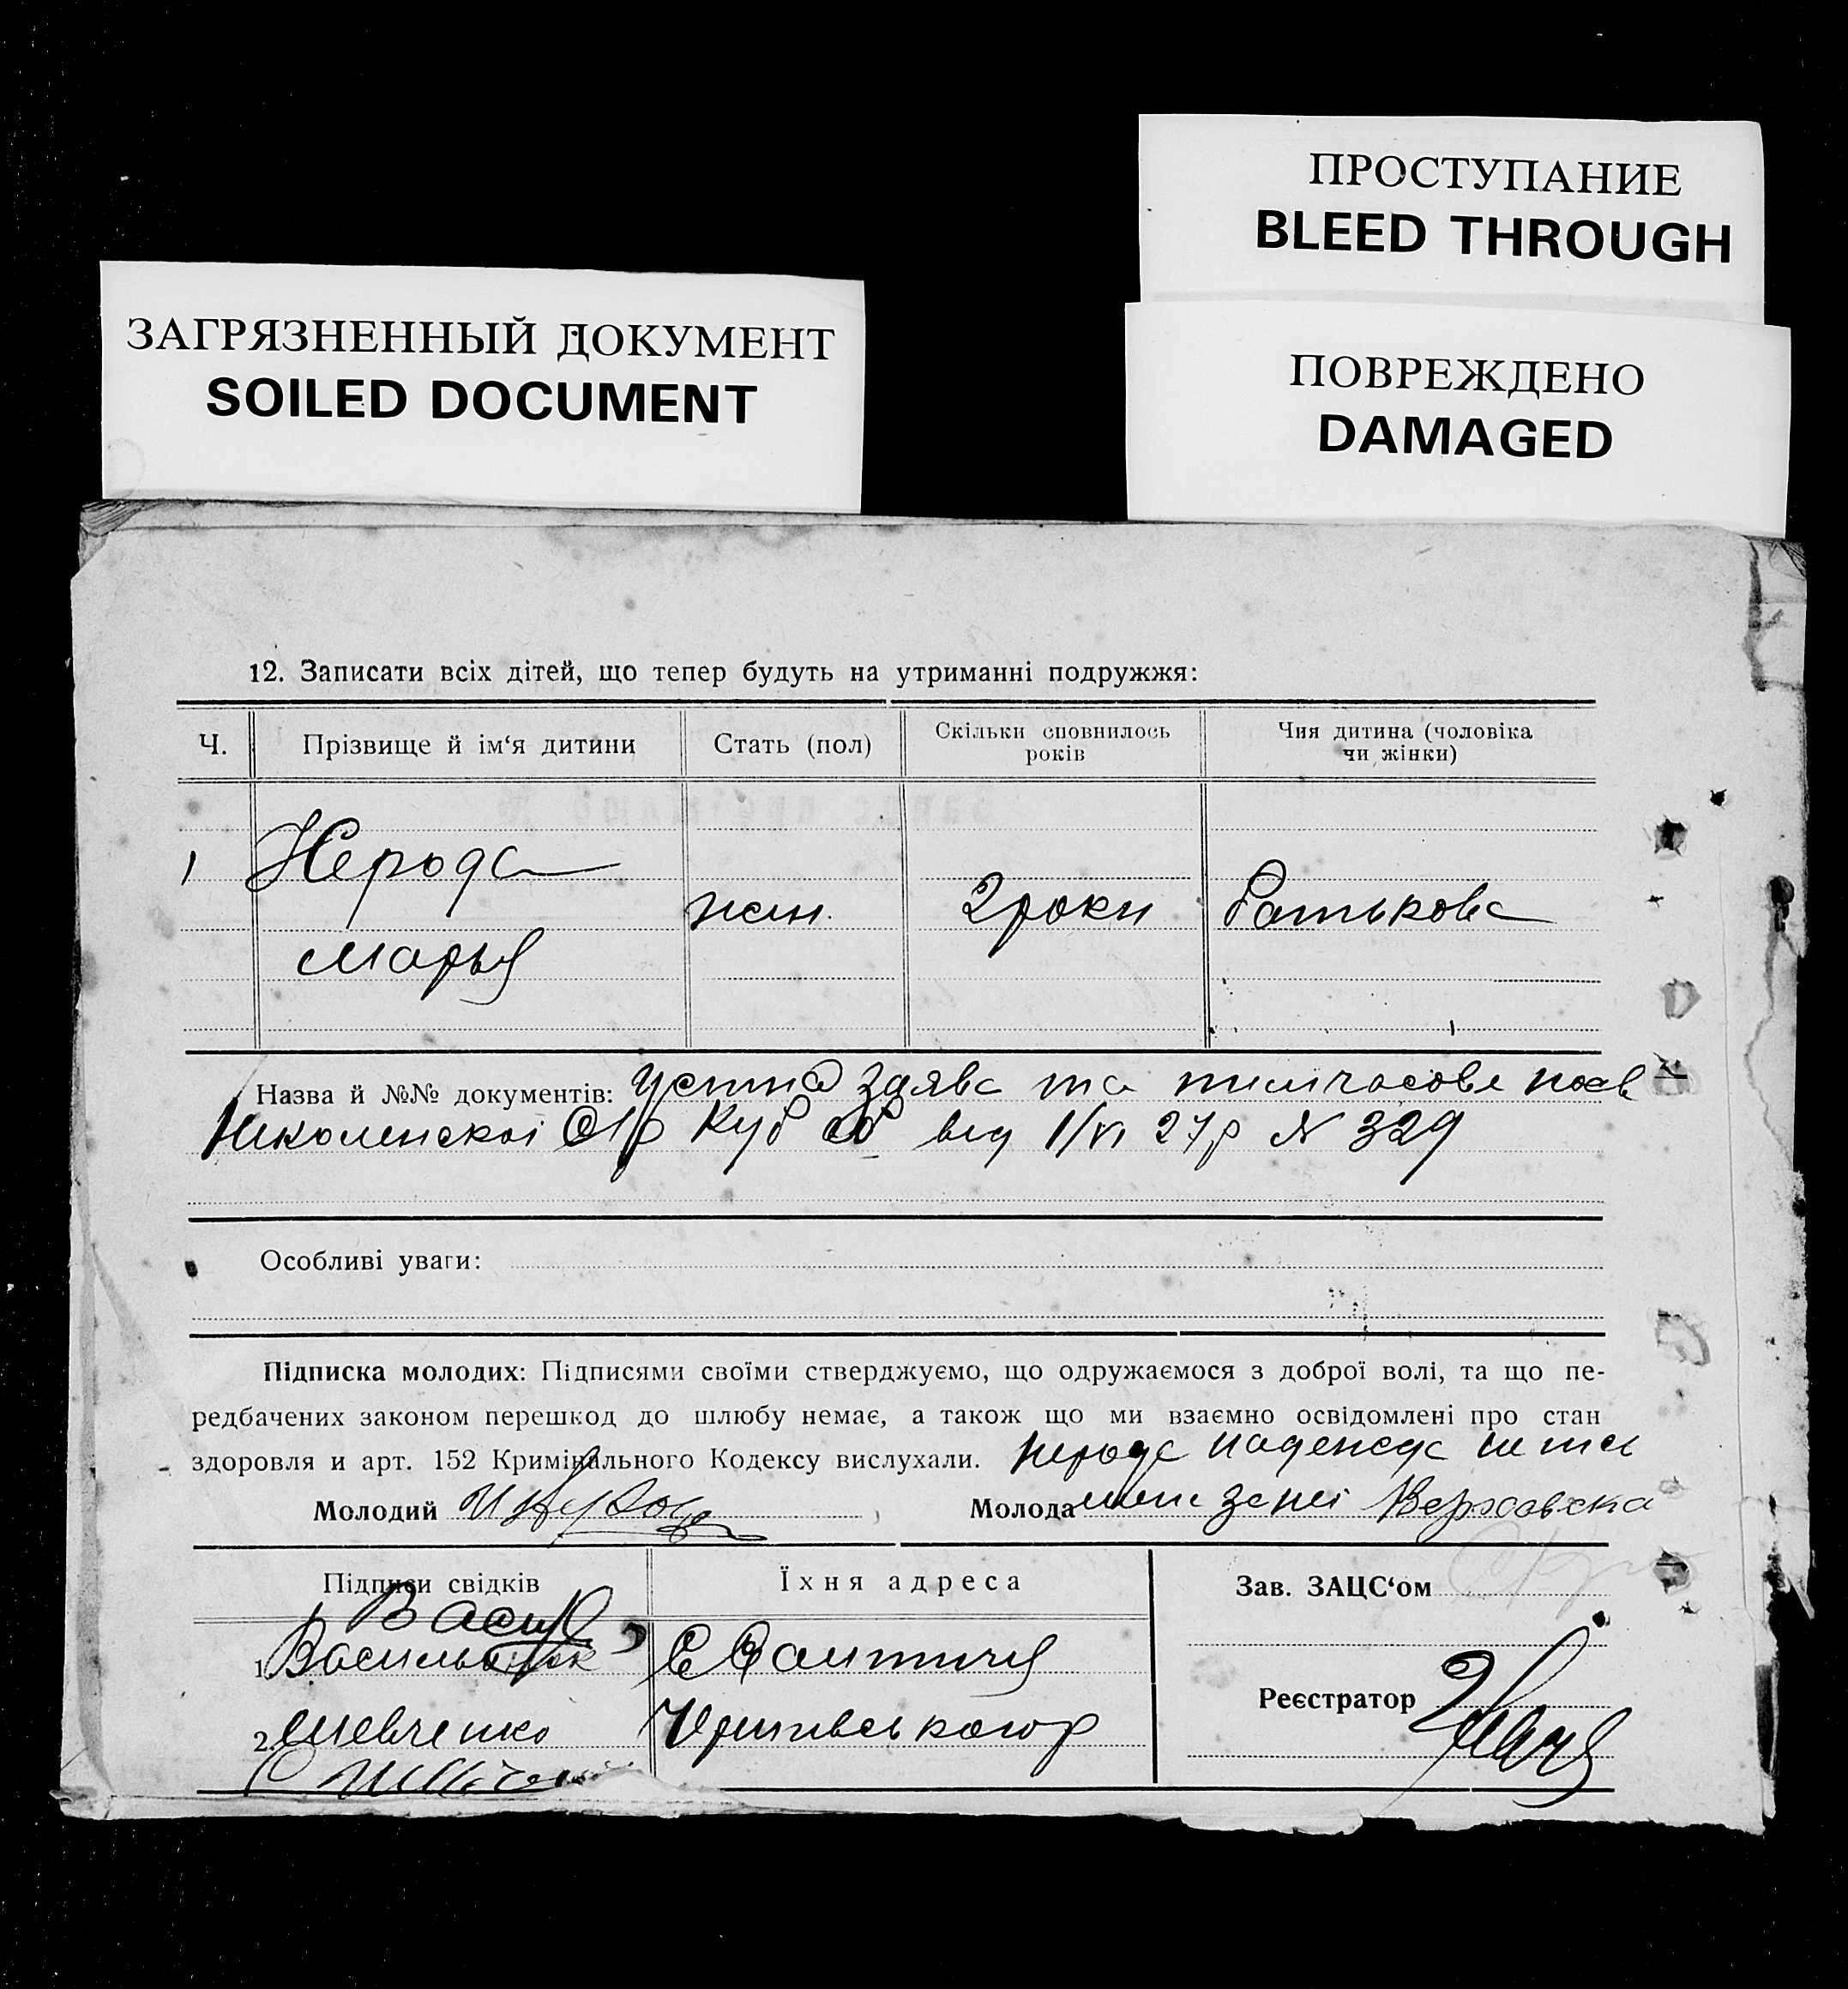 ПРОСТУПАНИЕ
BLEED THROUGH
ЗАГРЯЗНЕННЫЙ ДОКУМЕНТ
SOILED DOCUMENT
ПОВРЕЖДЕНО
DAMAGED
12. Записати всіх дітей, що тепер будуть на утриманні подружжя:
Ч. Прізвище й ім‘я дитини Стать (пол) Скільки сповнилось років Чия дитина (чоловіка чи жінки)
1 Нерода
жін. 2 роки Батькова
Марья
Назва й №№ документів: Устна заява та тимчасове посв
від 1/VI 27р N 329
Особливі уваги:
Підписка молодих: Підписями своїми стверджуємо, що одружаємося з доброї волі, та що пе-
редбачених законом перешкод до шлюбу немає, а також що ми взаємно освідомлені про стан
здоровля и арт. 152 Кримінального Кодексу вислухали. Нерода Надежда
Молодий Молода
Підписи свідків Їхня адреса Зав. ЗАЦС‘ом
1. Васильчук
Реєстратор
2. Шевченко